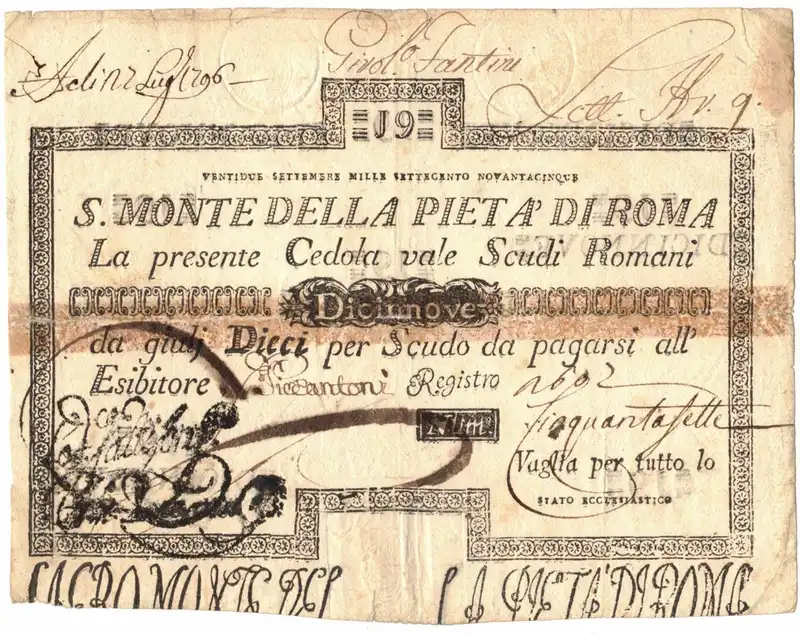 Girol.º Fantini
Adi 12 Lug.º 1796
Lett. Ab. 9.
19
VENTIDUE SETTEMBRE MILLE SETTECENTO NOVANTACINQUE
S. MONTE DELLA PIETA' DI ROMA
La presente Cedola vale Scudi Romani
Dicinnove
da giulj Dieci per Scudo da pagarsi all'
Esibitore Registro
Num.
Cinquantasette
Vaglia per tutto lo
STATO ECCLESIASTICO
SACRO MONTE DEL LA PIETA' DI ROMA